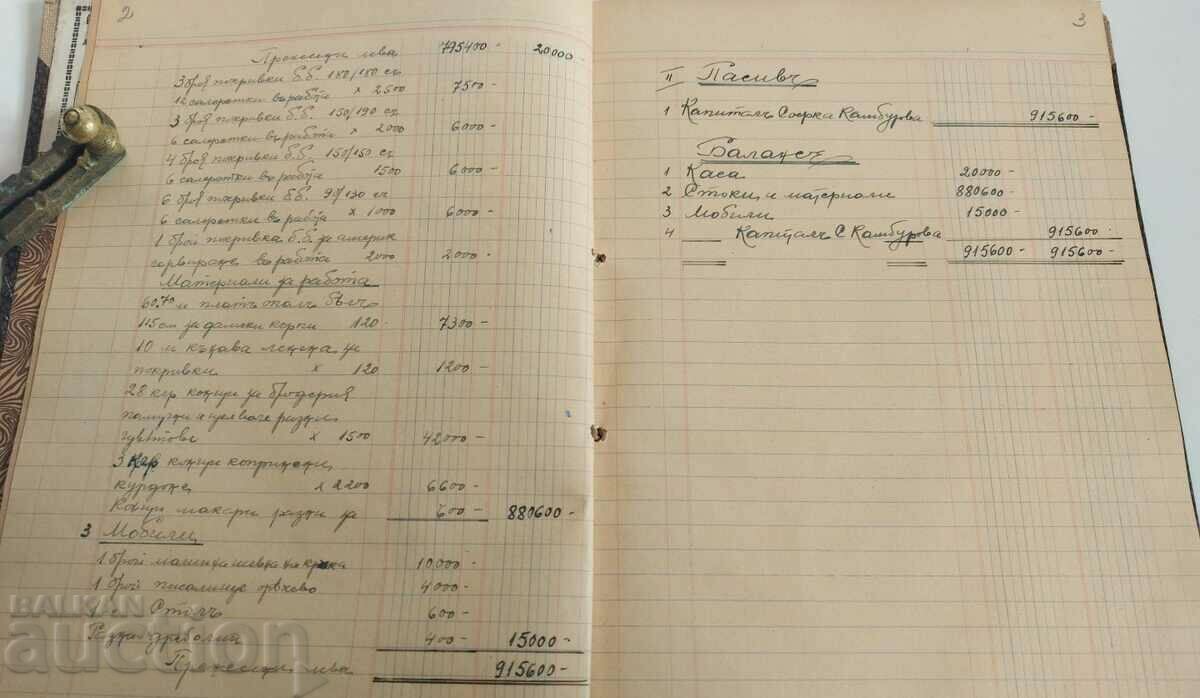 2
Пренесени лева 795400- 20000-
3 броя покривки б.б. 180/180 см
12 салфетки в работа × 2500 7500-
3 броя покривки б.б. 150/190 см
6 салфетки в работа × 2000 6000-
4 броя покривки б.б. 150/150 см
6 салфетки в работа 1500 6000-
6 броя покривки б.б. 9/130 см
6 салфетки в работа × 1000 6000-
1 брой покривка б.б. за америк
сервиране в работа 2000 2000-
Материали за работа
60.70 м платъ бѣлъ
115 см за дамски корпи 120- 7300-
10 м ленена за
покривки × 120 1200-
28 кгр. конци за бродерия
памучни разни
цвѣтове × 1500 42000-
3 кгр конци копринени
× 2200 6600-
Конци макари разни за 600- 880600-
3 Мобили
1 брой машина шевна на крака 10,000-
1 брой писалище орѣхово 4000-
Столъ 600-
400- 15000-
Пренесени лева 915600-
3
II Пасивъ
1 Капиталъ Софка Камбурова 915600-
Балансъ
1 Каса 20000-
2 Стоки и материали 880600-
3 Мобили 15000-
4 Капиталъ С Камбурова 915600-
915600- 915600-
BALKAN
auction